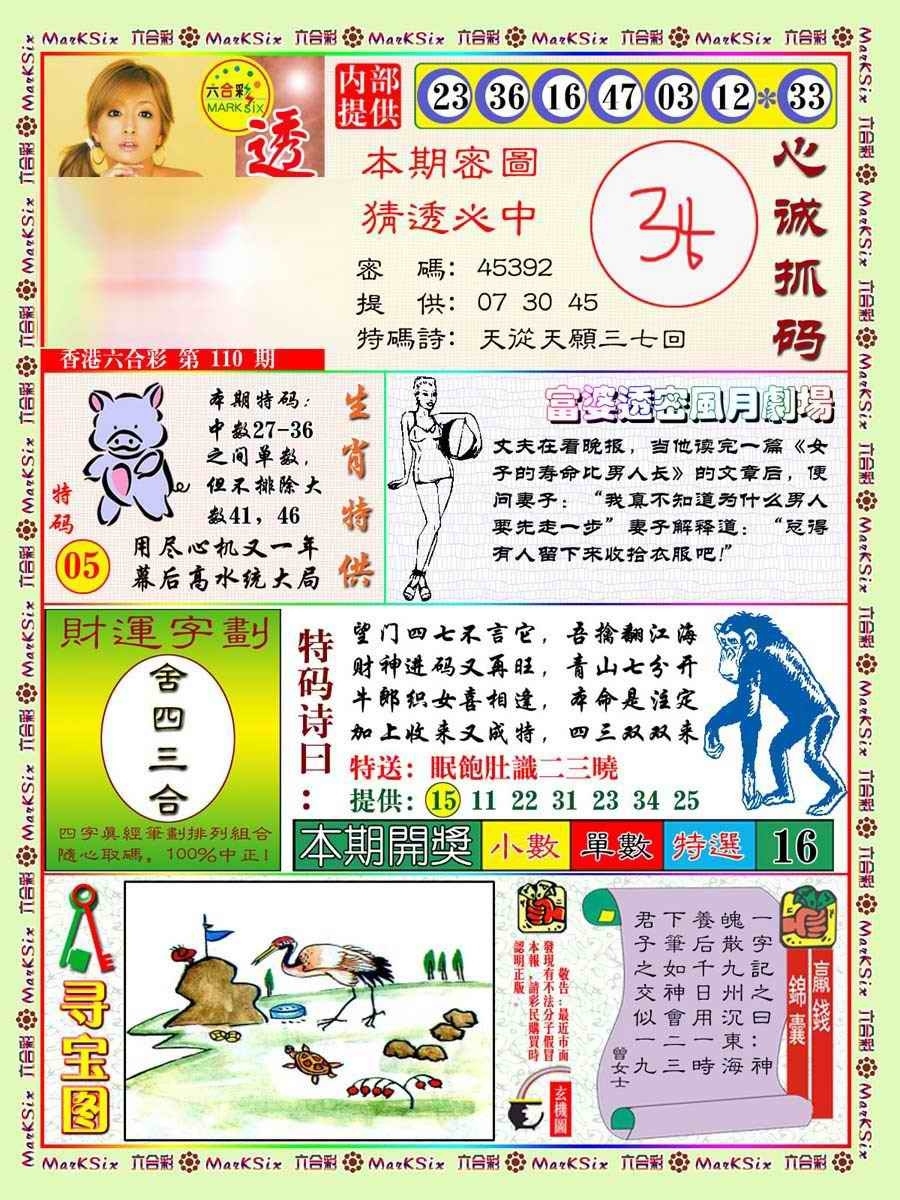 MarKSix 六合彩 MarKSix 六合彩 MarKSix 六合彩 MarKSix 六合彩 MarKSix 六合彩
六合彩
MARK SIX
透
内部
提供
23 36 16 47 03 12 * 33
本期密圖
猜透必中
密 碼：45392
提 供：07 30 45
特碼詩：天從天願三七回
心诚抓码
香港六合彩 第 110 期
本期特码：
中数27-36
之间单数，
但不排除大
数41，46
用尽心机又一年
幕后高水统大局
特码
05
生肖特供
富婆透密風月劇場
丈夫在看晚报，当他读完一篇《女
子的寿命比男人长》的文章后，便
问妻子：“我真不知道为什么男人
要先走一步”妻子解释道：“总得
有人留下来收拾衣服吧!”
財運字劃
舍四三合
四字真經筆劃排列組合
隨心取碼。100%中正!
特码诗曰：
望门四七不言它，吾擒翻江海
财神进码又再旺，青山七分开
牛郎织女喜相逢，本命是注定
加上收来又成特，四三双双来
特送：眠飽肚識二三曉
提供：15 11 22 31 23 34 25
本期開獎 小數 單數 特選 16
寻宝图
敬告：最近市面
發現有不法分子假冒
本報，請彩民購買時
認明正版。
玄機圖
一字記之曰：神
魄散九州沉東海
養后千日用一時
下筆如神會二三
君子之交似一九
曾女士
贏錢
錦囊
MarKSix 六合彩 MarKSix 六合彩 MarKSix 六合彩 MarKSix 六合彩 MarKSix 六合彩